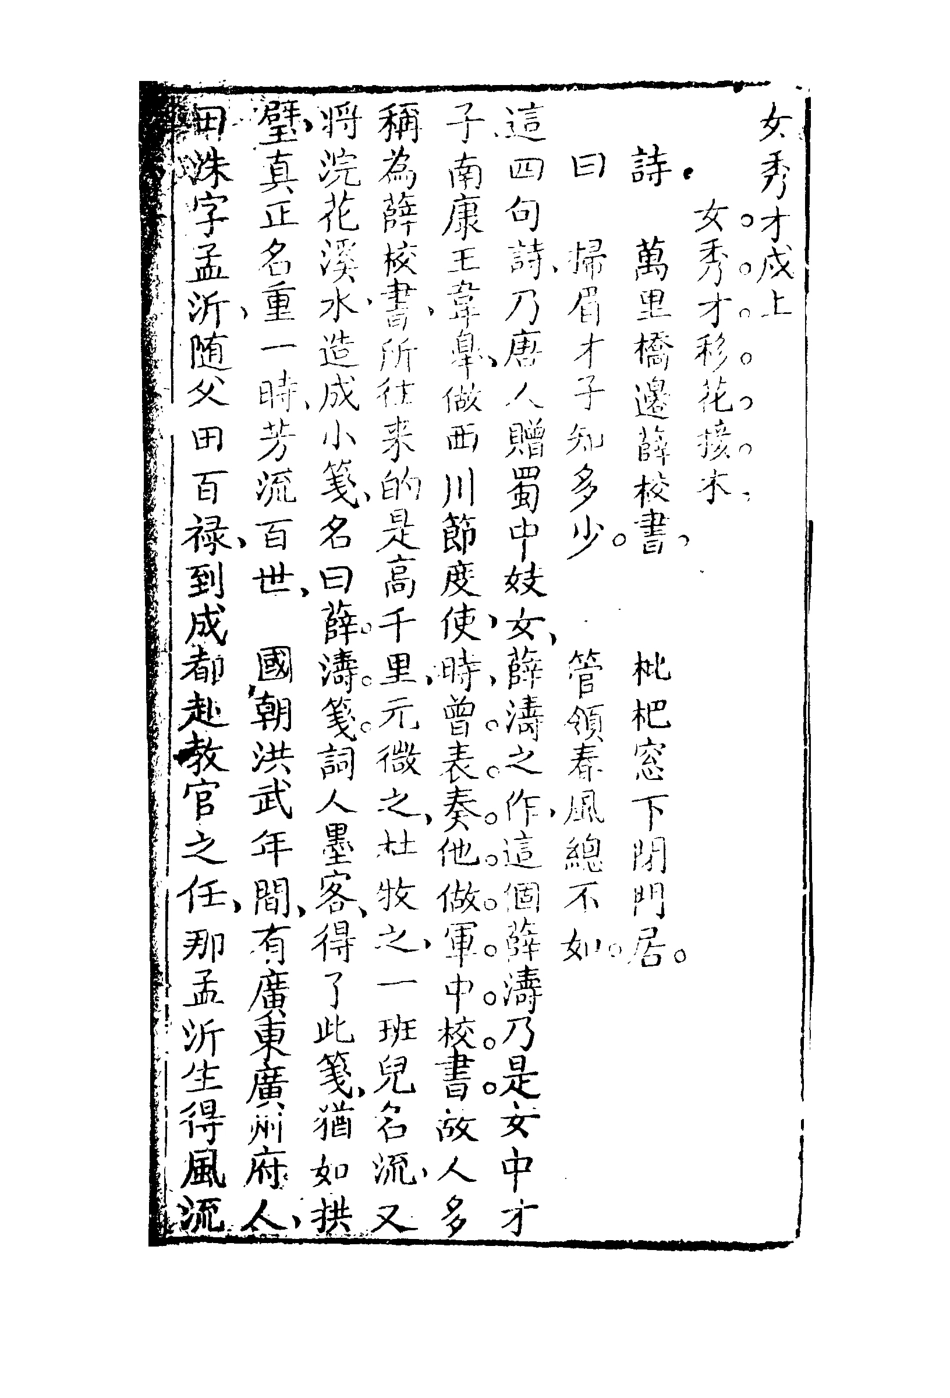 女秀才戍上
女秀才移花接木
詩　萬里橋邊薛校書　枇杷窓下閉門居
曰　掃眉才子知多少　管領春風總不如
這四句詩乃唐人贈蜀中妓女薛濤之作這個薛濤乃是女中才
子南康王韋皐做西川節度使時曾表奏他做軍中校書故人多
稱為薛校書所往来的是高千里元微之杜牧之一班兒名流又
将浣花溪水造成小箋名曰薛濤箋詞人墨客得了此箋猶如拱
璧真正名重一時芳流百世　國朝洪武年間有廣東廣州府人
田洙字孟沂随父田百禄到成都赴教官之任那孟沂生得風流